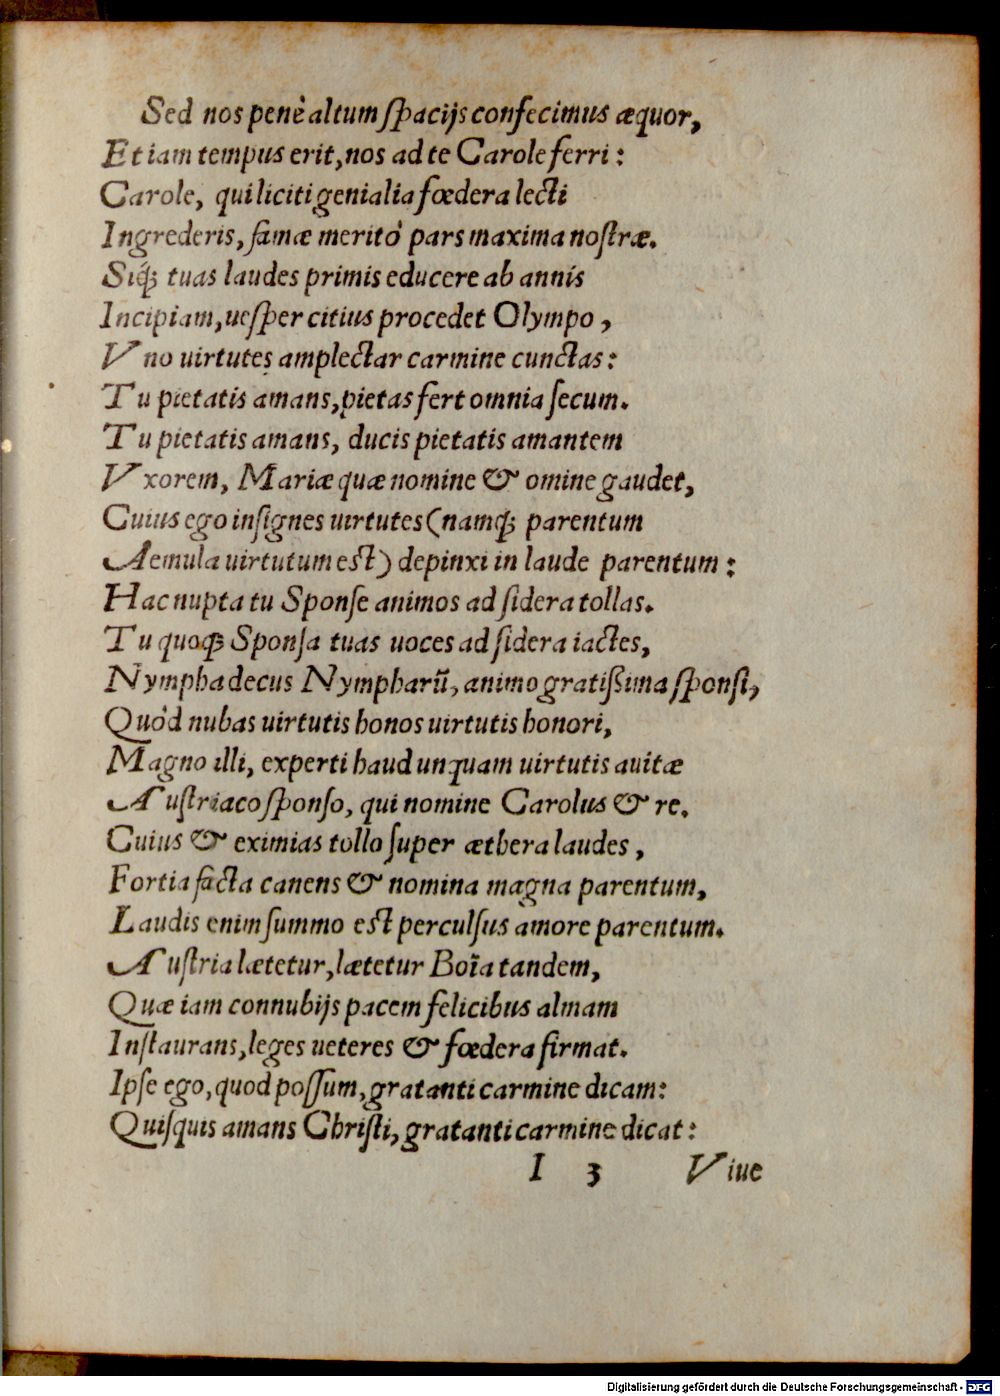 Sed nos penè altum spacijs confecimus æquor,
Et iam tempus erit, nos ad te Carole ferri:
Carole, qui liciti genialia fœdera lecti
Ingrederis, famæ meritò pars maxima nostræ.
Siq́; tuas laudes primis educere ab annis
Incipiam, uesper citius procedet Olympo,
Vno uirtutes amplectar carmine cunctas:
Tu pietatis amans, pietas fert omnia secum.
Tu pietatis amans, ducis pietatis amantem
Vxorem, Mariæ quæ nomine & omine gaudet,
Cuius ego insignes uirtutes (namq; parentum
Aemula uirtutum est) depinxi in laude parentum:
Hac nupta tu Sponse animos ad sidera tollas.
Tu quoq; Sponsa tuas uoces ad sidera iactes,
Nympha decus Nympharū, animo gratißima sponsi,
Quòd nubas uirtutis honos uirtutis honori,
Magno illi, experti haud unquam uirtutis auitæ
Austriaco sponso, qui nomine Carolus & re.
Cuius & eximias tollo super æthera laudes,
Fortia facta canens & nomina magna parentum,
Laudis enim summo est perculsus amore parentum.
Austria lætetur, lætetur Boia tandem,
Quæ iam connubijs pacem felicibus almam
Instaurans, leges ueteres & fœdera firmat.
Ipse ego, quod possum, gratanti carmine dicam:
Quisquis amans Christi, gratanti carmine dicat:
I 3 Viue
Digitalisierung gefördert durch die Deutsche Forschungsgemeinschaft - DFG